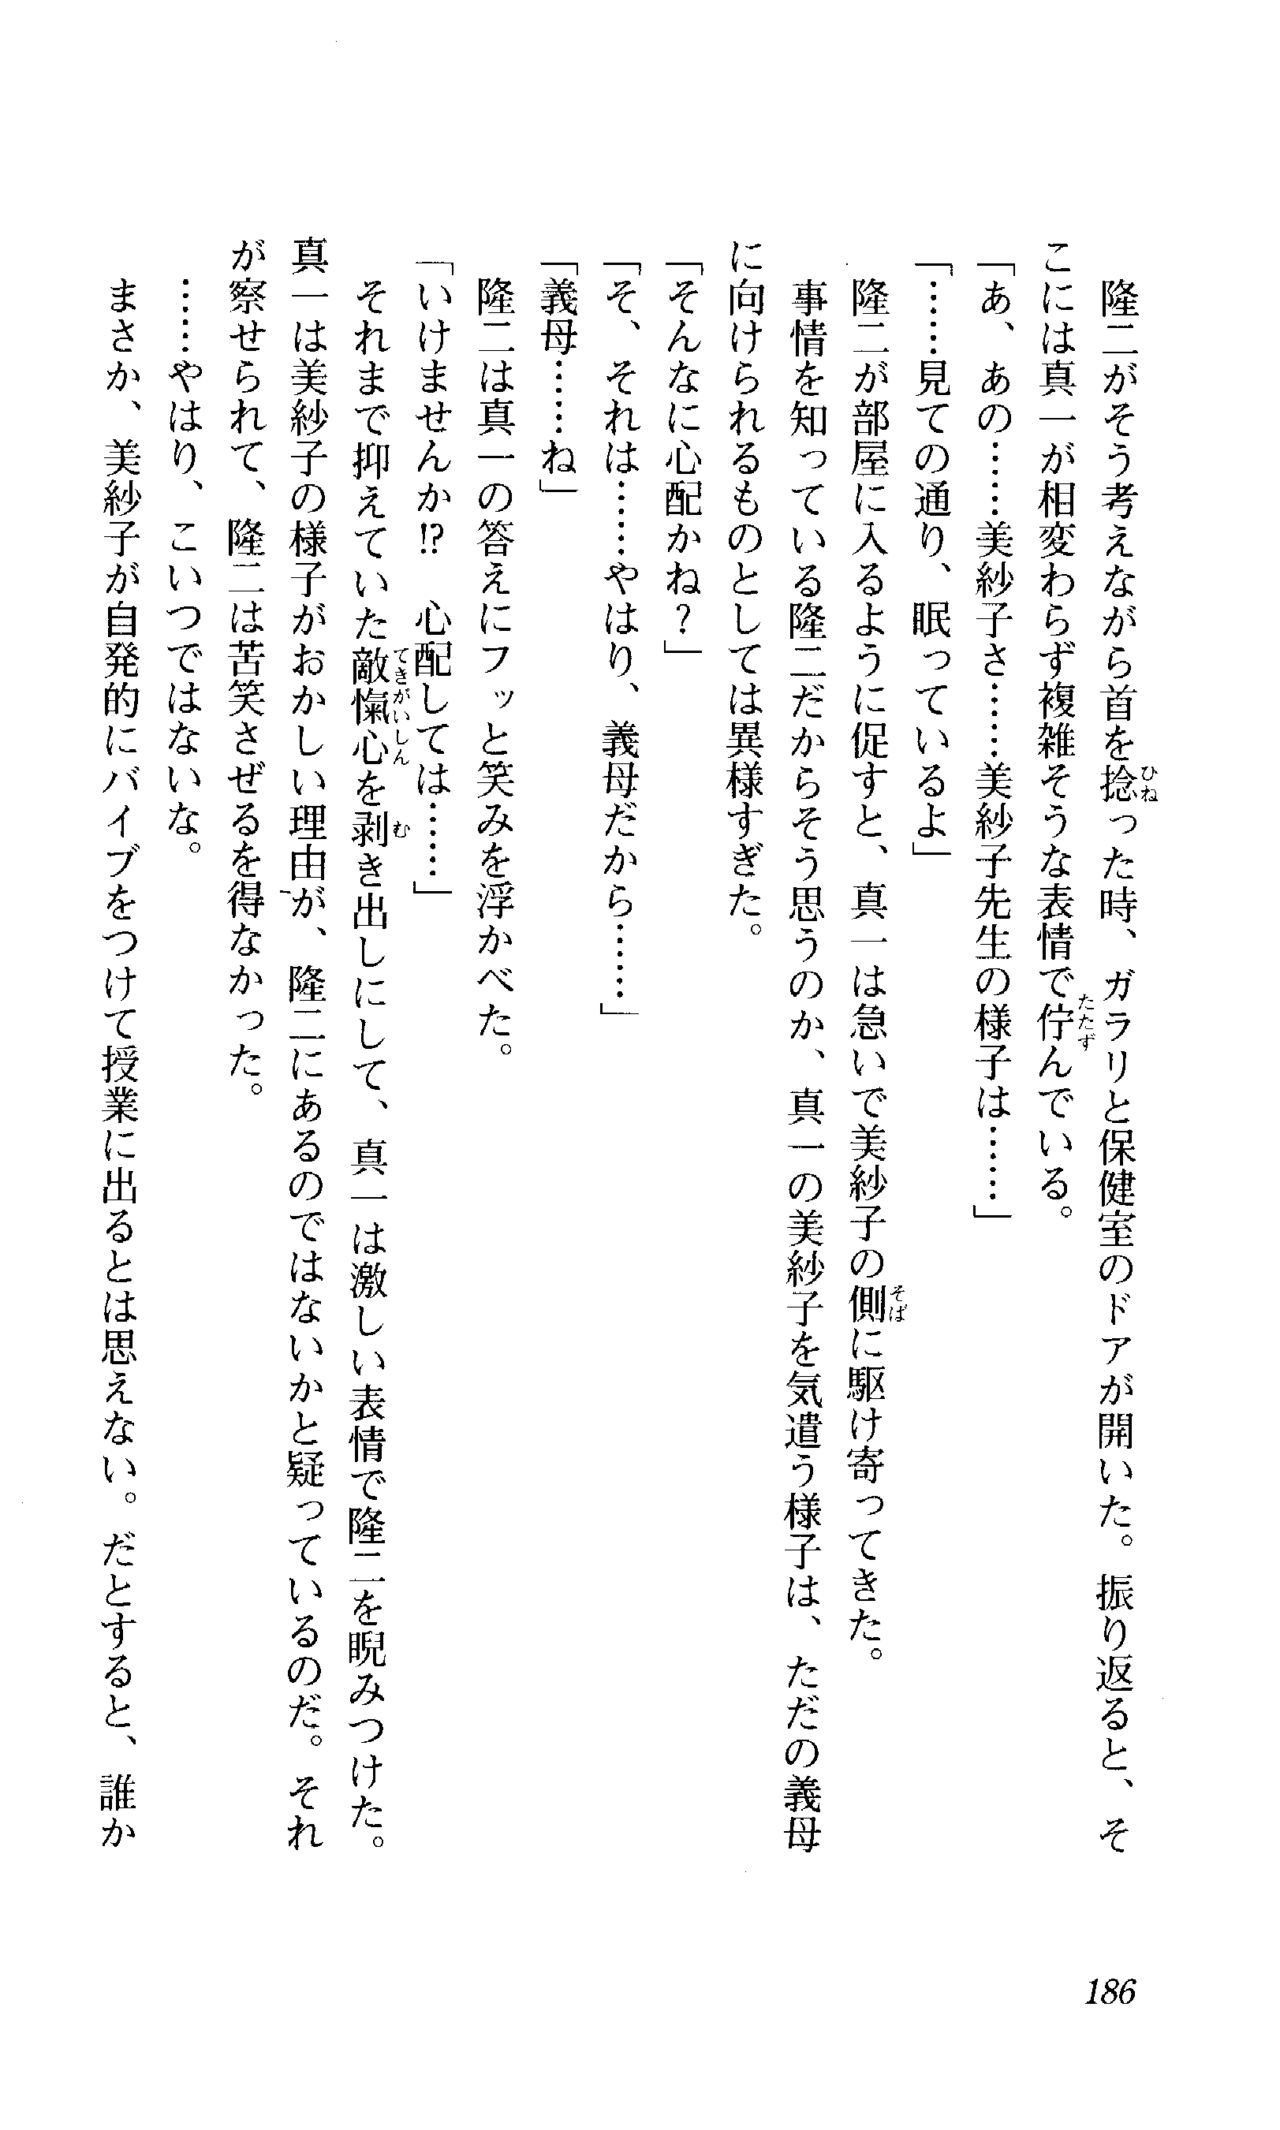 隆二がそう考えながら首を捻った時、ガラリと保健室のドアが開いた。振り返ると、そ
こには真一が相変わらず複雑そうな表情で佇んでいる。
「あ、あの……美紗子さ……美紗子先生の様子は……」
「……見ての通り、眠っているよ」
隆二が部屋に入るように促すと、真一は急いで美紗子の側に駆け寄ってきた。
事情を知っている隆二だからそう思うのか、真一の美紗子を気遣う様子は、ただの義母
に向けられるものとしては異様すぎた。
「そんなに心配かね？」
「そ、それは……やはり、義母だから……」
「義母……ね」
隆二は真一の答えにフッと笑みを浮かべた。
「いけませんか⁉　心配しては……」
それまで抑えていた敵愾心を剥き出しにして、真一は激しい表情で隆二を睨みつけた。
真一は美紗子の様子がおかしい理由が、隆二にあるのではないかと疑っているのだ。それ
が察せられて、隆二は苦笑さぜるを得なかった。
……やはり、こいつではないな。
まさか、美紗子が自発的にバイブをつけて授業に出るとは思えない。だとすると、誰か
186